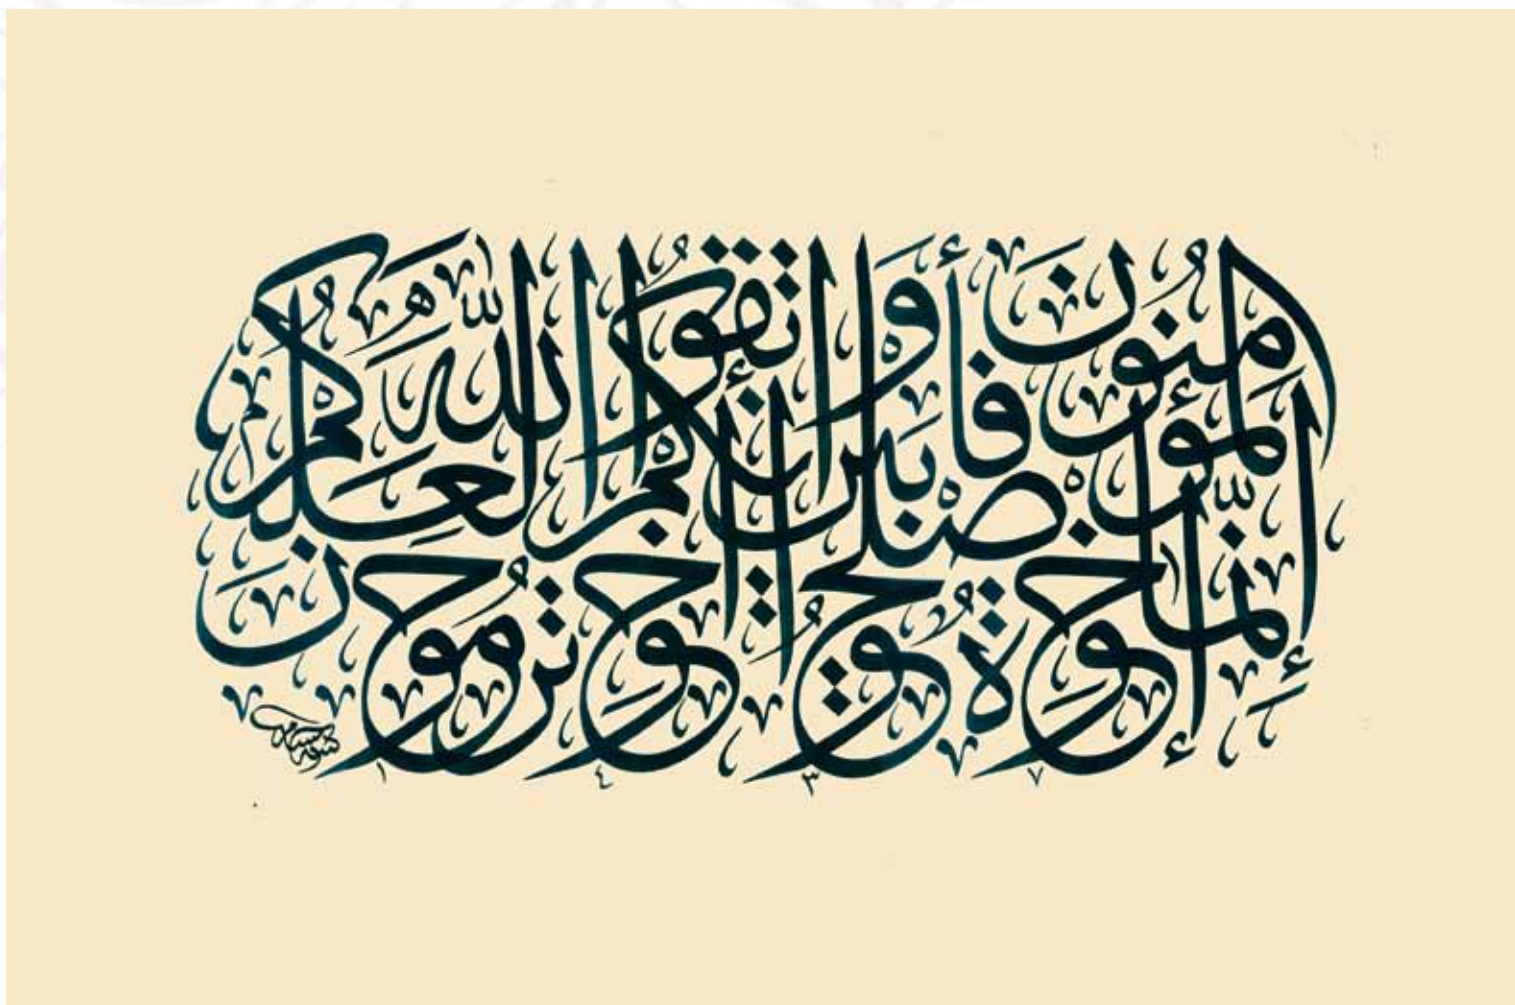 إِنَّمَا الْمُؤْمِنُونَ إِخْوَةٌ فَأَصْلِحُوا بَيْنَ أَخَوَيْكُمْ وَاتَّقُوا اللَّهَ لَعَلَّكُمْ تُرْحَمُونَ
١٤٣٧